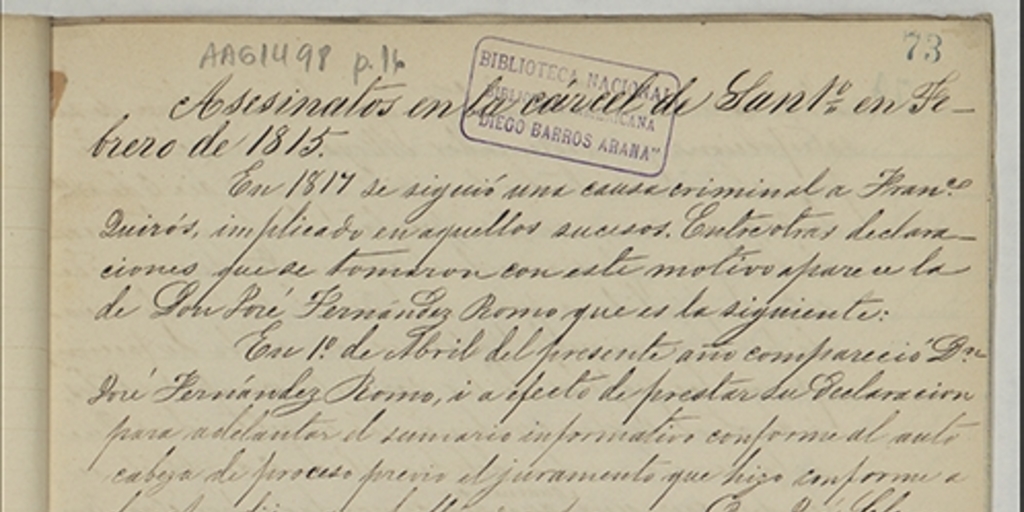 73
AAG1498 p.16
BIBLIOTECA NACIONAL
BIBLIOTECA AMERICANA
"DIEGO BARROS ARANA"
Asesinatos en la cárcel de Santo. en Fe-
brero de 1815.
En 1817 se siguió una causa criminal a Franco.
Quirós, implicado en aquellos sucesos. Entre otras declara-
ciones que se tomaron con este motivo aparece la
de Don José Fernández Romo que es la siguiente:
En 1o. de Abril del presente año compareció Dn.
José Fernández Romo, i a efecto de prestar su declaracion
para adelantar el sumario informativo conforme al auto
cabeza de proceso previo el juramento que hizo conforme a